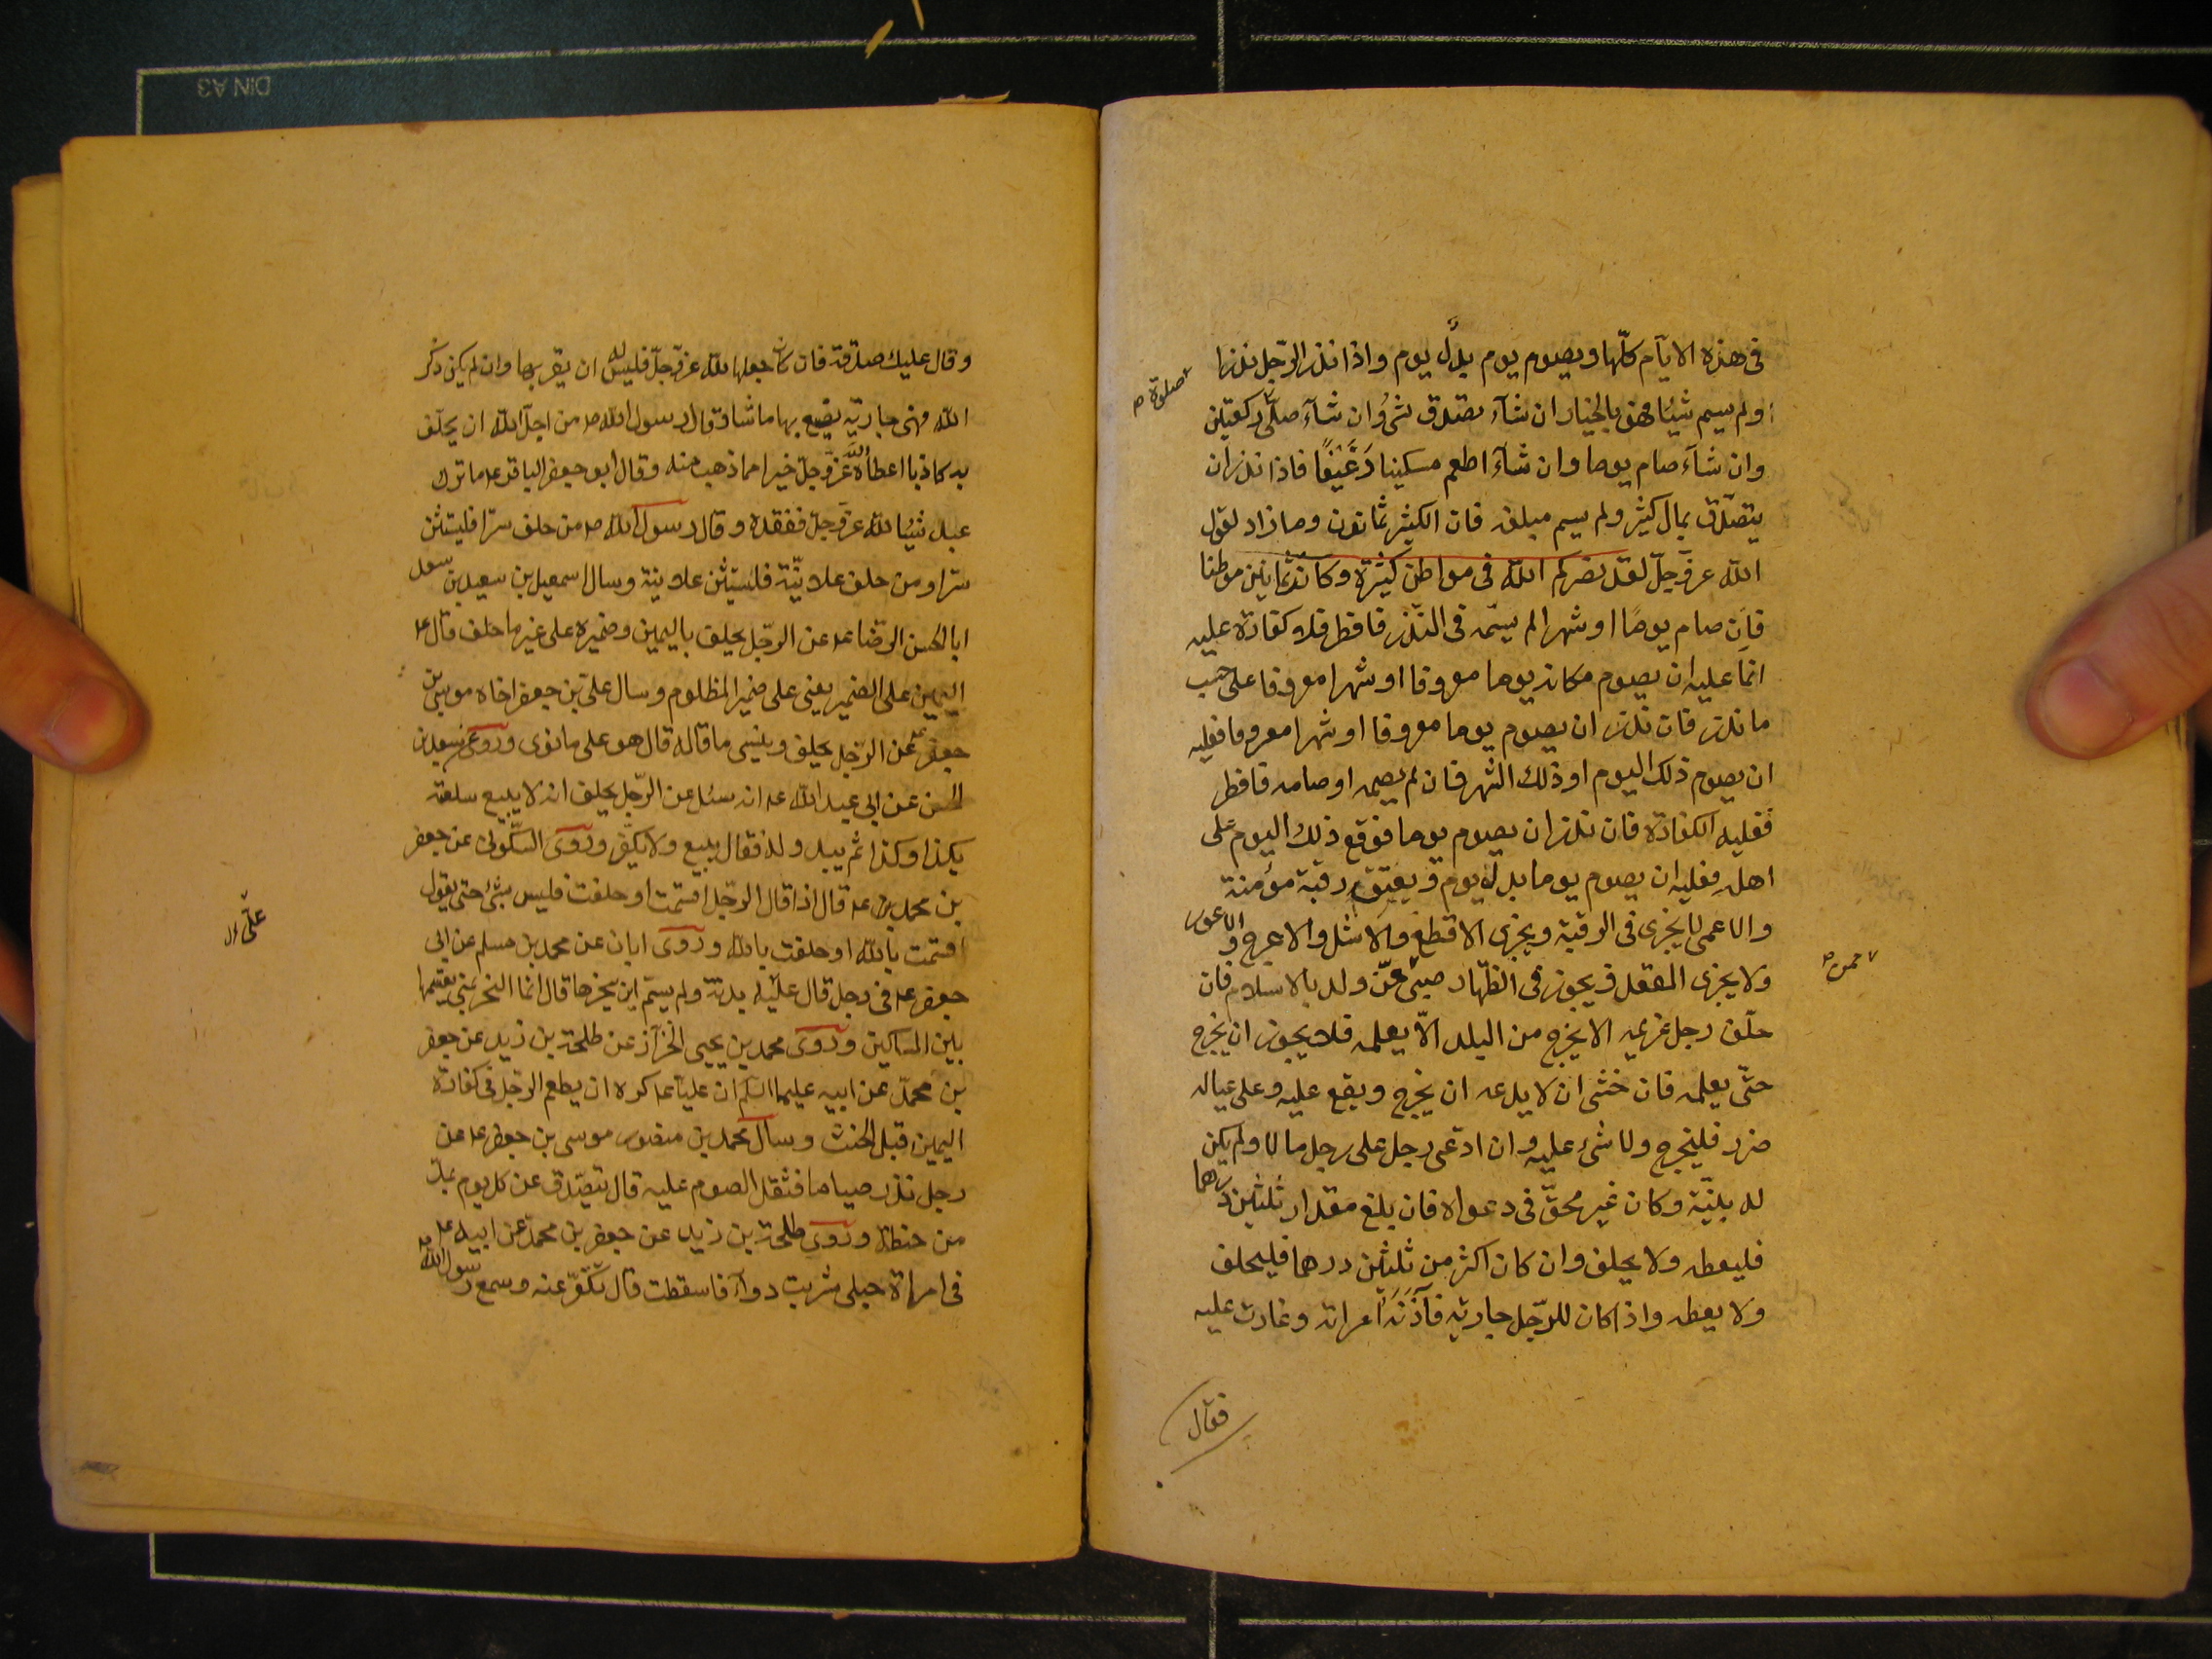 فى هذه الايّام كلّها ويصوم يوم بدل يوم واذا نذر الرّجل نذرا
صلوة
ولم يسم شيئا فهو بالخيار ان شآء تصدق بشئ وان شآء صلّى ركعتين
وان شآء صام يوما وان شآء اطعم مسكينا رَغيفًا فاذا نذر ان
يتصدّق بمال كثير ولم يسم مبلغه فان الكثير ثمانون وما زاد لقول
الله عزّوجلّ لقد نصركم الله فى مواطن كثيرة وكانت ثمانين موطنا
فان صام يومًا او شهرا لم يسمّه فى النّذر فافطر فلا كفارة عليه
انما عليه ان يصوم مكانه يوما معروفا او شهرا معروفا على حسب
ما نذر فان نذر ان يصوم يوما معروفا او شهرا معروفا فعليه
ان يصوم ذلك اليوم او ذلك الشهر فان لم يصمه او صامه فافطر
فعليه الكفارة فان نذر ان يصوم يوما فوقع ذلك اليوم على
اهله فعليه ان يصوم يوما بدل يوم ويعتق رقبة مؤمنة
والاعمى لا يجزى فى الرقبة ويجزى الاقطع والاشل والاعرج والاعور
ولا يجزى المقعد ويجوز فى الظهار صبى ممّن ولد بالاسلام فان
ممن
حلّف رجل غريمه الا يخرج من البلد الاّ يعلمه فلا يجوز ان يخرج
حتّى يعلمه فان خشى ان لا يدعه ان يخرج ويقع عليه وعلى عياله
ضرر فليخرج ولا شئ عليه وان ادّعى رجل على رجل مالا ولم يكن
له بيّنة وكان غير محقّ فى دعواه فان بلغ مقدار ثلثين درهما
فليعطه ولا يحلف وان كان اكثر من ثلثين درهما فليحلف
ولا يعطه واذا كان للرّجل جارية فآذته امراته وغارت عليه
فقال
وقال عليك صدقة فان كان جعلها لله عزّوجلّ فليس له ان يقربها وان لم يكن ذكر
الله فهى جاريته يصنع بها ما شاء وقال رسول الله ص من اجلّ الله ان يحلف
به كاذبا اعطاه الله عزّوجلّ خيرا مما ذهب منه وقال ابو جعفر الباقر ع ما ترك
عبد شيئا لله عزّوجلّ ففقده وقال رسول الله ص من حلف سرّا فليستثن
سرّا ومن حلف علانيّة فليستثن علانية وسال اسمعيل بن سعيد بن سعد
ابا الحسن الرّضا ع عن الرّجل يحلف باليمين وضميره على غير ما حلف قال ع
اليمين على الضمير يعنى على ضمير المظلوم وسال علىّ بن جعفر اخاه موسى بن
جعفر ع عن الرّجل يحلف وينسى ما قاله قال هو على ما نوى وروى سعد بن
الحسن عن ابى عبد الله ع انه سئل عن الرّجل يحلف انه لا يبيع سلعته
بكذا وكذا ثم يبدو له فقال يبيع ولا يكفّر وروى السّكونى عن جعفر
بن محمد ع قال اذا قال الرّجل اقسمت او حلفت فليس بشئ حتى يقول
اقسمت بالله او حلفت بالله وروى ابان عن محمد بن مسلم عن ابى
جعفر ع فى رجل قال عليّه بدنة ولم يسمّ اين ينحرها قال انّما النّحر بمنى يقسمها
بين المساكين وروى محمد بن يحيى الخزّاز عن طلحة بن زيد عن جعفر
بن محمّد عن ابيه عليهما السّلم ان عليّا ع كره ان يطعم الرّجل فى كفارة
اليمين قبل الحنث وسال محمد بن منصور موسى بن جعفر ع عن
رجل نذر صياما فثقل الصوم عليه قال يتصّدق عن كل يوم بمدّ
من حنطة وروى طلحة بن زيد عن جعفر بن محمد عن ابيه ع
فى امراة حبلى شربت دوآء فاسقطت قال تكفّر عنه وسمع رسول الله ص